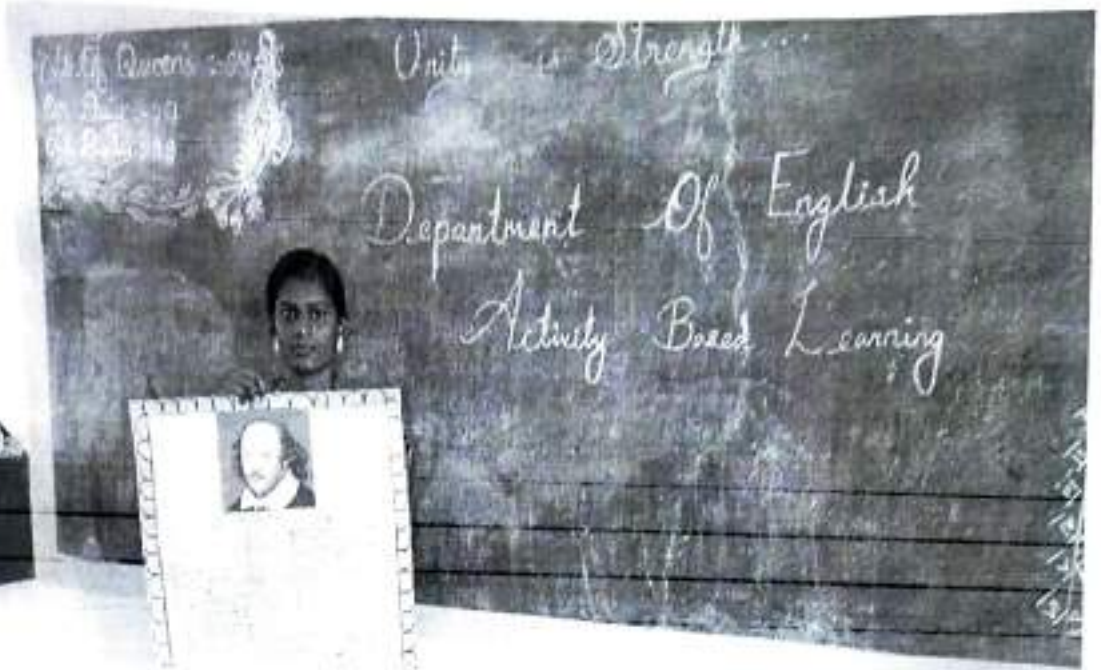 Unity is Strength...
Department Of English
Activity Based Learning